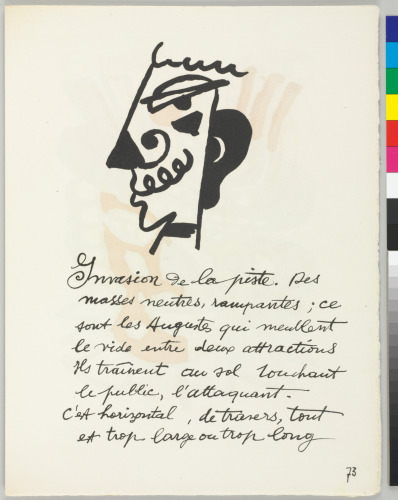 Invasion de la piste. Des
masses neutres, rampantes ; ce
sont les Augustes qui meublent
le vide entre deux attractions
Ils traînent au sol touchant
le public, l'attaquant.
C'est horizontal, de travers, tout
est trop large ou trop long
73